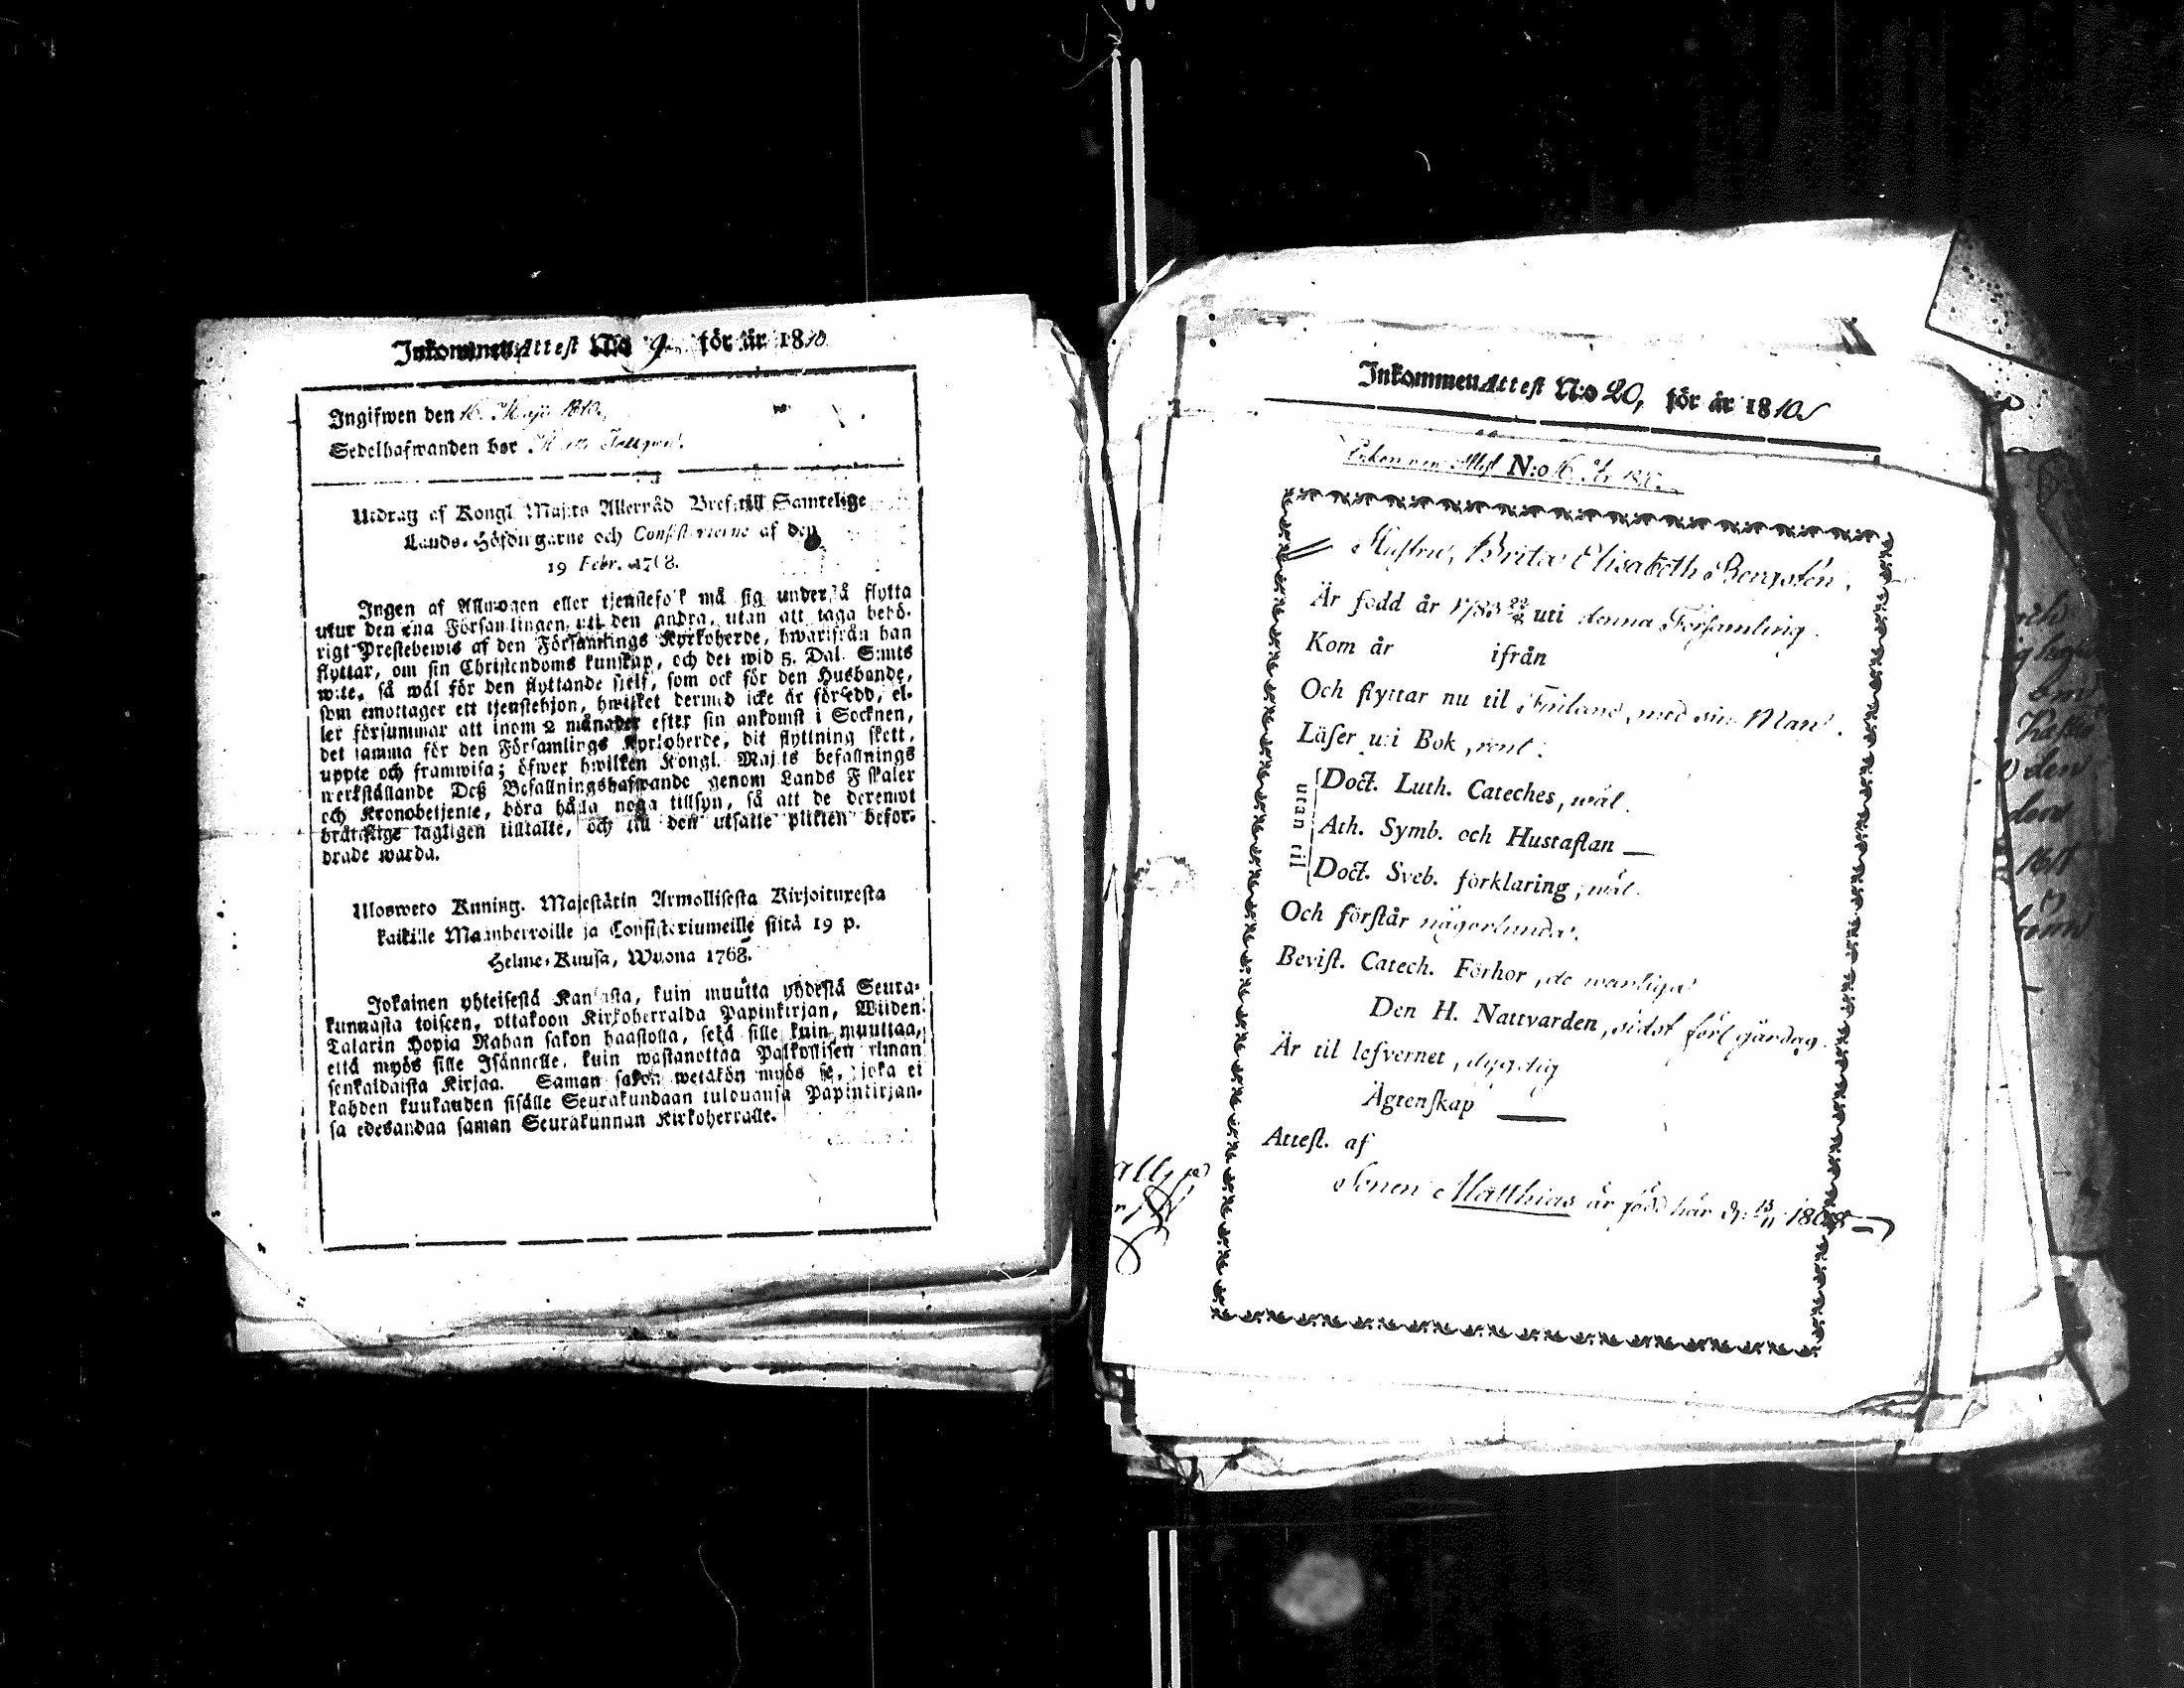 Inkommen Attest No 9. för år 1810
Ingifwen den 16. Maji 1810.
Sedelhafwanden bor
Utdrag af Kongl. Maj:ts Allernåd Bref till Samtelige
Lands-Höfdingarne och Consistorierne af den
19 Febr. 1768.
Ingen af Allmogen eller tjenstefolk må sig understå flytta
utur den ena Församlingen uti den andra, utan att taga behö-
rigt Prestebewis af den Församlings Kyrkoherde, hwarifrån han
flyttar, om sin Christendoms kunskap, och det wid 5. Dal. S:mts
wite, så wäl för den flyttande sjelf, som ock för den Husbonde,
som emottager ett tjenstehjon, hwilket dermed icke är försedd, el-
ler försummar att inom 2 månader efter sin ankomst i Socknen,
det samma för den Församlings Kyrkoherde, dit flyttning skett,
uppte och framwisa; öfwer hwilken Kongl. Maj:ts befallnings
werkställande Deß Befallningshafwande genom Lands Fiskaler
och Kronobetjente, böra hålla noga tillsyn, så att de deremot
bråtslige lagligen tilltalte, och till den utsatte plikten befor-
drade warda.
Ulosweto Kuning. Majestätin Armollisesta Kirjoituxesta
kaikille Maanherroille ja Consistoriumeille siitä 19 p.
Helme-Kuusa, Wuonna 1768.
Jokainen yhteisestä Kansasta, kuin muutta yhdestä Seura-
kunnasta toiseen, ottakoon Kirkoherralda Papinkirjan, Wiiden
Talarin Hopia Rahan sakon haastolla, sekä sille kuin muuttaa,
että myös sille Isännelle, kuin wastanottaa Palkollisen ilman
senkaldaista Kirjaa. Saman sakon wetäkön myös se, joka ei
kahden kuukauden sisälle Seurakundaan tulouansa Papinkirjan-
sa edesandaa saman Seurakunnan Kirkoherralle.
Inkommen Attest N:o 20, för år 1810
Inkommen Attest N:o 16. år 1810.
Hustru, Brita Elisabeth Bergstén.
Är född år 1783 uti denna Församling.
Kom år ifrån
Och flyttar nu til Finland, med sin Man.
Läser uti Bok, rent.
utan til
Doct. Luth. Cateches, wäl.
Ath. Symb. och Hustaflan —
Doct. Sveb. förklaring, wäl.
Och förstår någorlunda.
Bevist. Catech. Förhör, de wanliga
Den H. Nattvarden, sidst förl. gårdag.
Är til lefvernet, dygdig
Ägtenskap —
Attest. af
Sonen Matthias är född här d. 13/11 1808